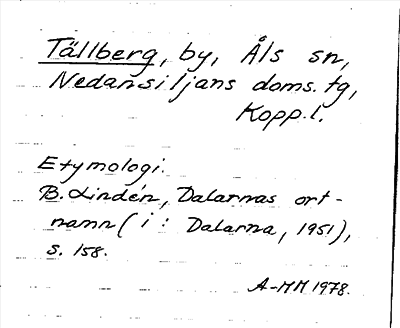 Tällberg, by, Åls sn,
Nedansiljans doms. tg,
Kopp. l.
Etymologi.
B. Lindén, Dalarnas ort-
namn (i: Dalarna, 1951),
s. 158.
A-MM 1978.